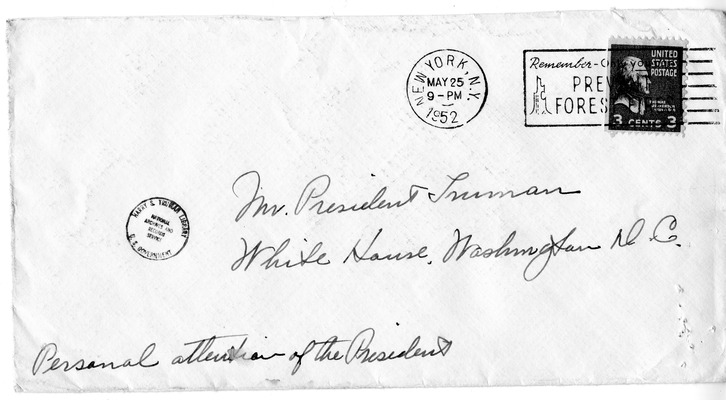 NEW YORK, N.Y.
MAY 25
9-PM
1952
Remember-Only you
PREV
FORES
UNITED
STATES
POSTAGE
3 CENTS 3
HARRY S. TRUMAN LIBRARY
NATIONAL
ARCHIVES AND
RECORDS
SERVICE
U. S. GOVERNMENT
Mr. President Truman
White House, Washington D.C.
Personal attention of the President